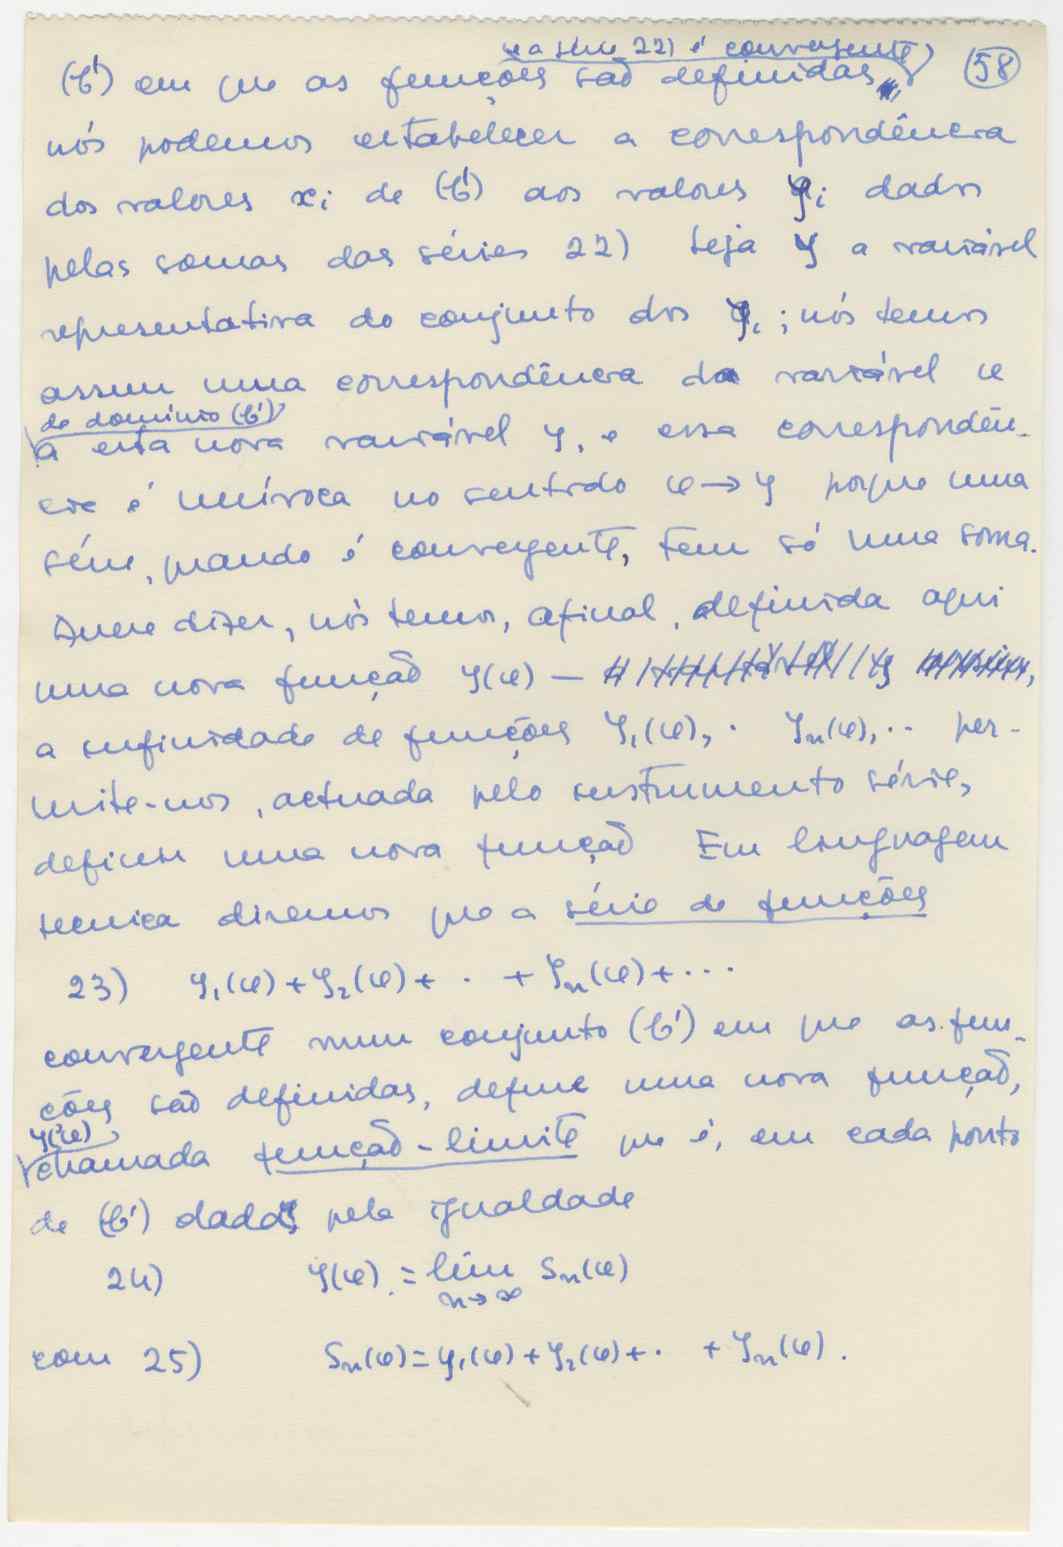 e a série 22) é convergente
(58)
(b') em que as funções são definidas,
nós podemos estabelecer a correspondência
dos valores xi de (b') aos valores yi dados
pelas somas das séries 22) Seja y a variável
representativa do conjunto dos yi ; nós temos
assim uma correspondência da variável x
de domínio (b')
a esta nova variável y, e essa correspondên-
cia é unívoca no sentido x → y porque uma
série, quando é convergente, tem só uma soma.
Quere dizer, nós temos, afinal, definida aqui
uma nova função y(x) —
a infinidade de funções y₁(x), · yₙ(x), ·· per-
mite-nos, actuada pelo instrumento série,
definir uma nova função Em linguagem
tecnica diremos que a série de funções
23) y₁(x) + y₂(x) + · + yₙ(x) + ···
convergente num conjunto (b') em que as fun-
ções são definidas, define uma nova função,
y(x)
chamada função-limite que é, em cada ponto
de (b') dada pela igualdade
24) y(x) = lim Sₙ(x)
n→∞
com 25) Sₙ(x) = y₁(x) + y₂(x) + · + yₙ(x).